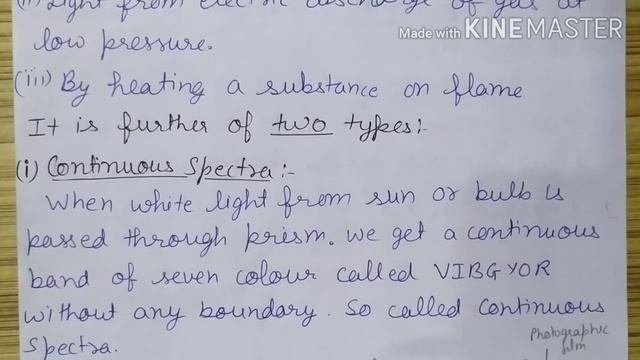 (ii) Light from electric discharge of gas at
Made with KINEMASTER
low pressure.
(iii) By heating a substance on flame
It is further of two types:-
(i) Continuous Spectra:-
When white light from sun or bulb is
passed through prism. We get a continuous
band of seven colour called VIBGYOR
without any boundary. So called Continuous
Spectra.
Photographic
film